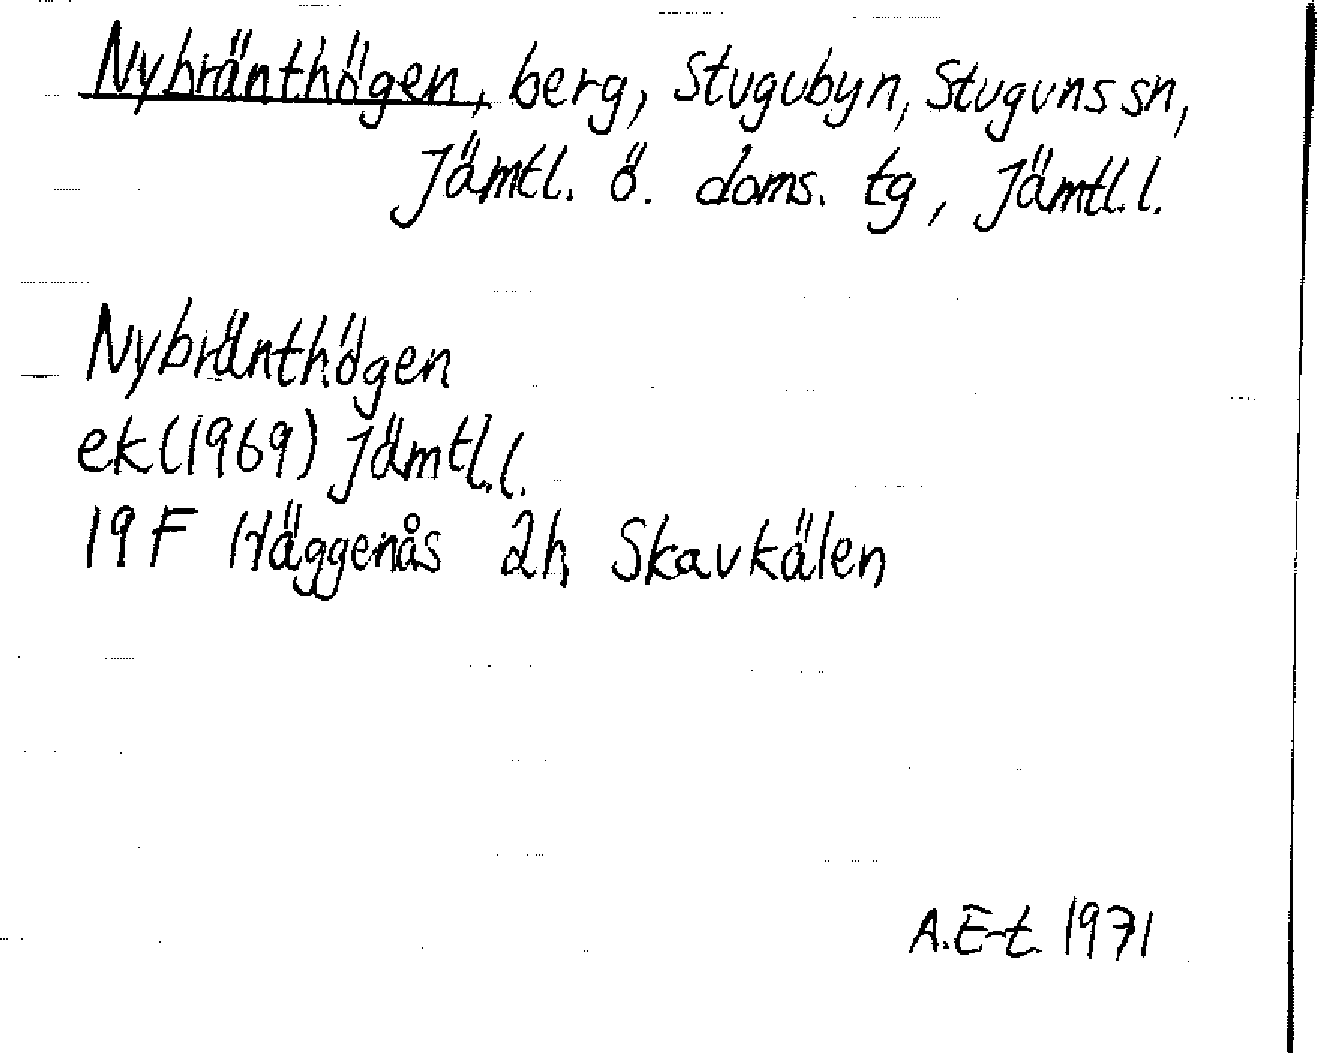 Nybränthögen, berg, Stugubyn, Stuguns sn,
Jämtl. ö. doms. tg, Jämtl.l.
Nybränthögen
ek (1969) Jämtl.l.
19 F Häggenås 2h Skavkälen
A.E-t 1971